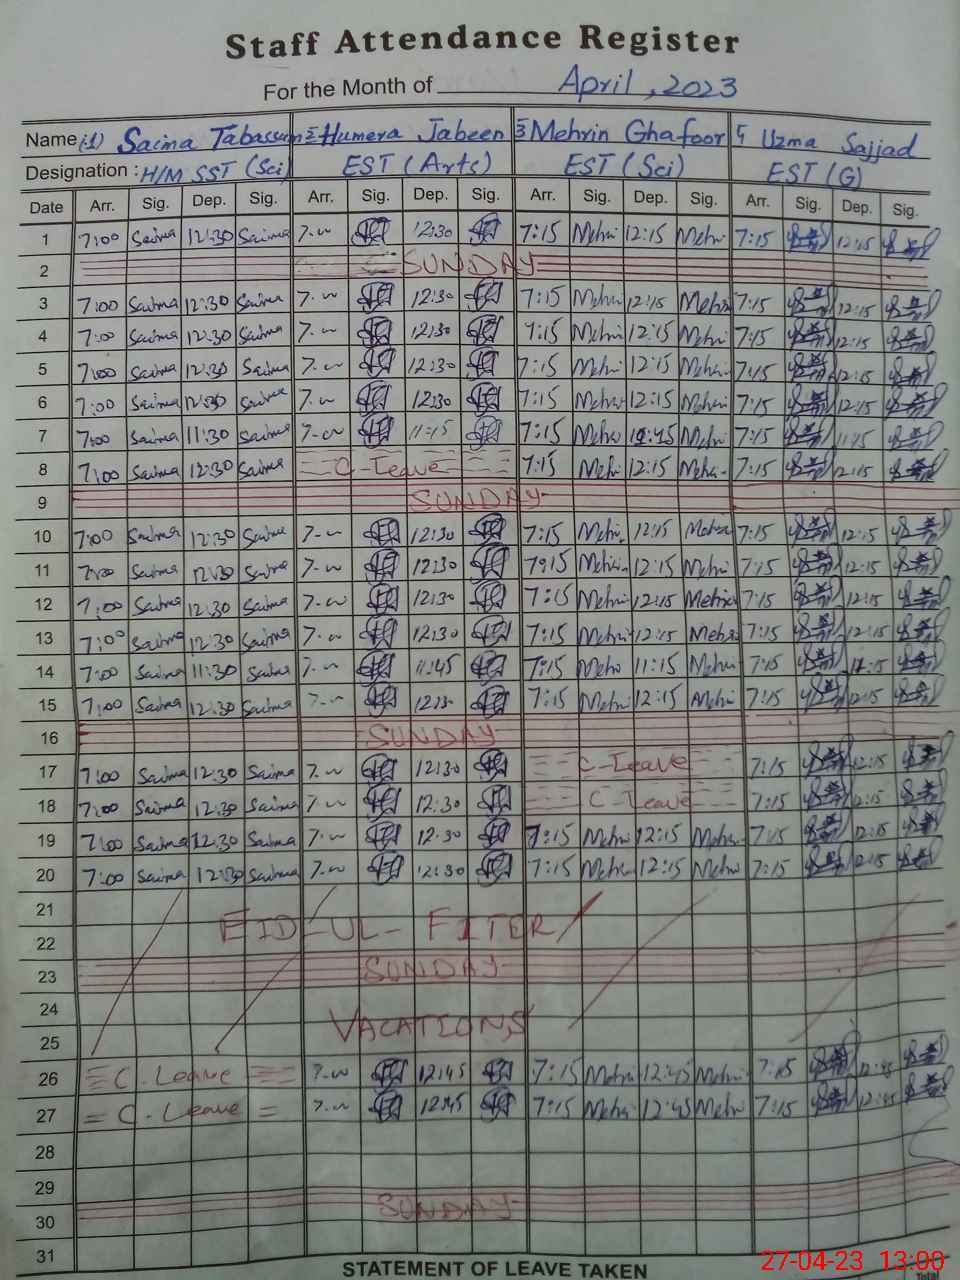 Staff Attendance Register
For the Month of April, 2023
Name (1) Saima Tabassum 2 Humera Jabeen 3 Mehrin Ghafoor 4 Uzma Sajjad
Designation : H/M SST (Sci) EST (Arts) EST (Sci) EST (G)
Date Arr. Sig. Dep. Sig. Arr. Sig. Dep. Sig. Arr. Sig. Dep. Sig. Arr. Sig. Dep. Sig.
1 7:00 Saima 12:30 Saima 7-00 12:30 7:15 Mehri 12:15 Mehri 7:15 12:15
2 SUNDAY
3 7:00 Saima 12:30 Saima 7-00 12:30 7:15 Mehri 12:15 Mehri 7:15 12:15
4 7:00 Saima 12:30 Saima 7-00 12:30 7:15 Mehri 12:15 Mehri 7:15 12:15
5 7:00 Saima 12:30 Saima 7-00 12:30 7:15 Mehri 12:15 Mehri 7:15 12:15
6 7:00 Saima 12:30 Saima 7-00 12:30 7:15 Mehri 12:15 Mehri 7:15 12:15
7 7:00 Saima 11:30 Saima 7-00 11:15 7:15 Mehri Mehri 7:15
8 7:00 Saima 12:30 Saima C-Leave 7:15 Mehri 12:15 Mehri 7:15 12:15
9 SUNDAY
10 7:00 Saima 12:30 Saima 7-00 12:30 7:15 Mehri 12:15 Mehri 7:15 12:15
11 7:00 Saima 12:30 Saima 7-00 12:30 7:15 Mehri 12:15 Mehri 7:15 12:15
12 7:00 Saima 12:30 Saima 7-00 12:30 7:15 Mehri 12:15 Mehri 7:15 12:15
13 7:00 Saima 12:30 Saima 7-00 12:30 7:15 Mehri 12:15 Mehri 7:15 12:15
14 7:00 Saima 11:30 Saima 7-00 11:45 7:15 Mehri 11:15 Mehri 7:15 11:15
15 7:00 Saima 12:30 Saima 7-00 12:30 7:15 Mehri 12:15 Mehri 7:15 12:15
16 SUNDAY
17 7:00 Saima 12:30 Saima 7-00 12:30 C-Leave 7:15 12:15
18 7:00 Saima 12:30 Saima 7-00 12:30 C-Leave 7:15 12:15
19 7:00 Saima 12:30 Saima 7-00 12:30 7:15 Mehri 12:15 Mehri 7:15 12:15
20 7:00 Saima 12:30 Saima 7-00 12:30 7:15 Mehri 12:15 Mehri 7:15 12:15
21
EID-UL-FITER
22
23 SUNDAY
24
VACATIONS
25
26 C-Leave 7-00 12:45 7:15 Mehri 12:45 Mehri 7:15 12:45
27 C-Leave 7-00 12:45 7:15 Mehri 12:45 Mehri 7:15 12:45
28
29
30 SUNDAY
31
STATEMENT OF LEAVE TAKEN
Total
27-04-23 13:00